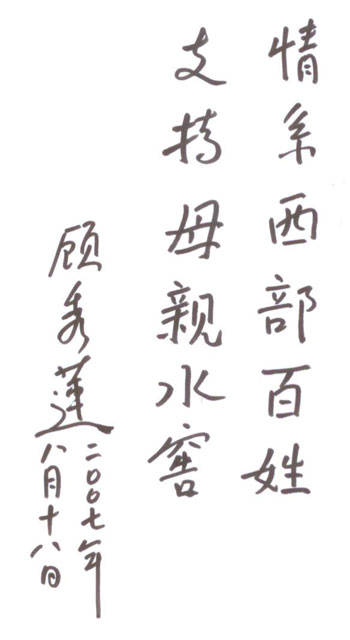 情系西部百姓
支持母亲水窖
顾秀莲
二〇〇七年
八月十八日